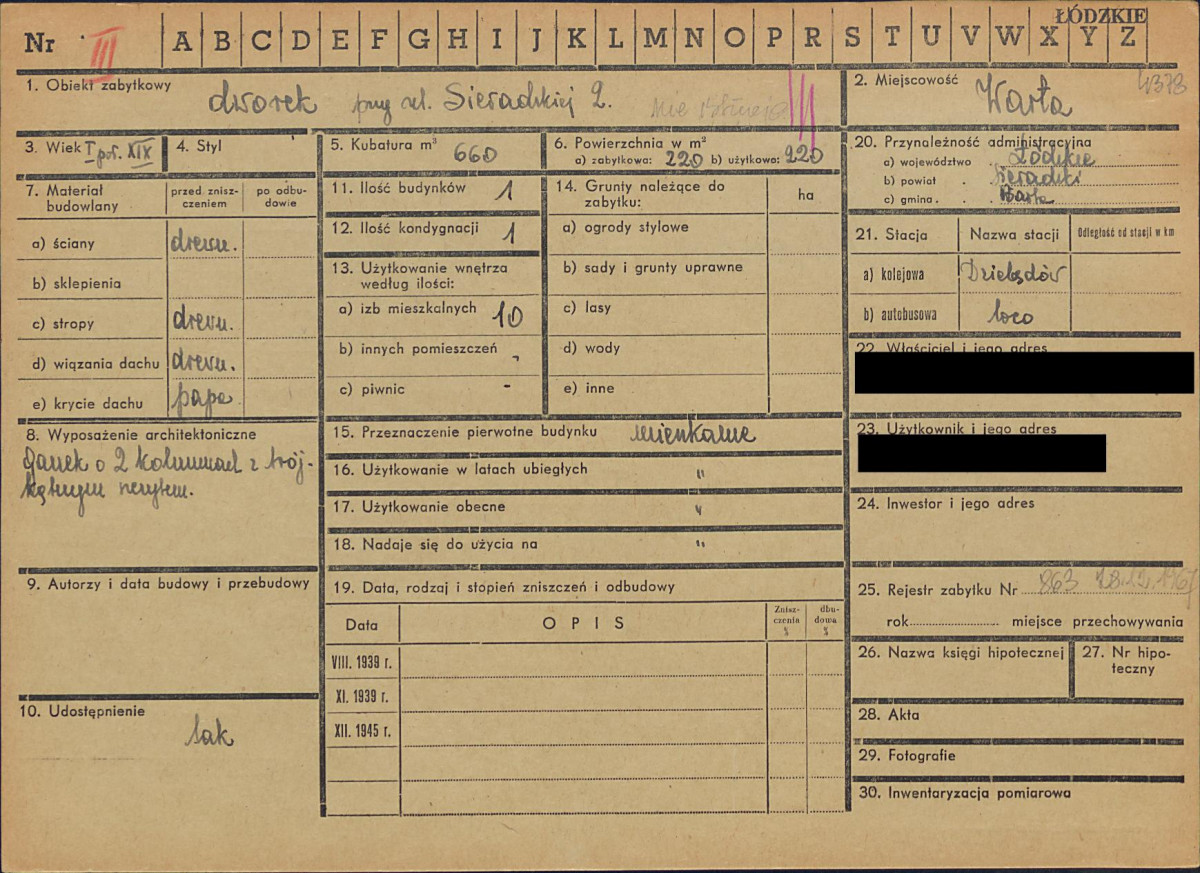 ŁÓDZKIE
Nr III A B C D E F G H I J K L M N O P R S T U V W X Y Z
1. Obiekt zabytkowy
dworek przy ul. Sieradzkiej 2. nie istnieje
2. Miejscowość
Warta
3. Wiek I poł. XIX
4. Styl
5. Kubatura m³ 660
6. Powierzchnia w m²
a) zabytkowa: 220 b) użytkowa: 220
7. Materiał budowlany
przed. znisz-
czeniem
po odbu-
dowie
a) ściany drewn.
b) sklepienia
c) stropy drewn.
d) wiązania dachu drewn.
e) krycie dachu papa
8. Wyposażenie architektoniczne
ganek o 2 kolumnach z trój-
kątnym szczytem.
9. Autorzy i data budowy i przebudowy
10. Udostępnienie
tak
11. Ilość budynków 1
12. Ilość kondygnacji 1
13. Użytkowanie wnętrza
według ilości:
a) izb mieszkalnych 10
b) innych pomieszczeń -
c) piwnic -
14. Grunty należące do
zabytku:
ha
a) ogrody stylowe
b) sady i grunty uprawne
c) lasy
d) wody
e) inne
15. Przeznaczenie pierwotne budynku mieszkalne
16. Użytkowanie w latach ubiegłych "
17. Użytkowanie obecne "
18. Nadaje się do użycia na "
19. Data, rodzaj i stopień zniszczeń i odbudowy
Data
OPIS
Znisz-
czenia
%
dbu-
dowa
%
VIII. 1939 r.
XI. 1939 r.
XII. 1945 r.
20. Przynależność administracyjna
a) województwo Łódzkie
b) powiat Sieradzki
c) gmina Warta
21. Stacja
Nazwa stacji
Odległość od stacji w km
a) kolejowa
b) autobusowa loco
22. Właściciel i jego adres
23. Użytkownik i jego adres
24. Inwestor i jego adres
25. Rejestr zabytku Nr 863 28.12.1967
rok miejsce przechowywania
26. Nazwa księgi hipotecznej
27. Nr hipo-
teczny
28. Akta
29. Fotografie
30. Inwentaryzacja pomiarowa